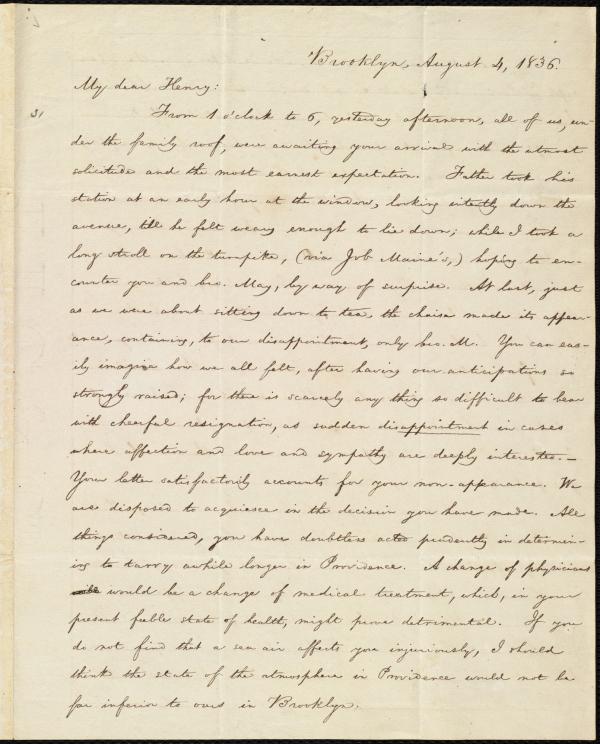 Brooklyn, August 4, 1836.
My dear Henry:
31
From 1 o'clock to 6, yesterday afternoon, all of us, un-
der the family roof, were awaiting your arrival with the utmost
solicitude and the most earnest expectation. Father took his
station at an early hour at the window, looking intently down the
avenue, till he felt weary enough to lie down; while I took a
long stroll on the turnpike, (via Job Maine's,) hoping to en-
counter you and bro. May, by way of surprise. At last, just
as we were about sitting down to tea, the chaise made its appear-
ance, containing, to our disappointment, only bro. M. You can eas-
ily imagine how we all felt, after having our anticipations so
strongly raised; for there is scarcely any thing so difficult to bear
with cheerful resignation, as sudden disappointment in cases
where affection and love and sympathy are deeply interested.—
Your letter satisfactorily accounts for your non-appearance. We
are disposed to acquiesce in the decision you have made. All
things considered, you have doubtless acted prudently in determin-
ing to tarry awhile longer in Providence. A change of physicians
would be a change of medical treatment, which, in your
present feeble state of health, might prove detrimental. If you
do not find that a sea air affects you injuriously, I should
think the state of the atmosphere in Providence would not be
far inferior to ours in Brooklyn.